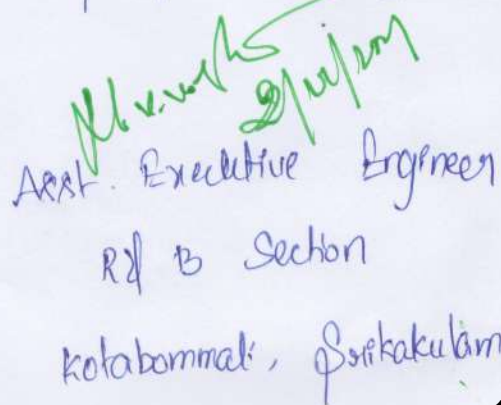 Asst. Executive Engineer
R & B Section
Kotabommali, Srikakulam